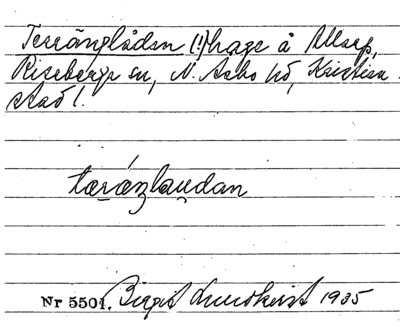 Terränglåden (!) hage å Allarp,
Riseberga sn, N. Åsbo hd, Kristian-
stad l.
tæráŋlaudan
Nr 5501. Birgit Lundkvist 1935